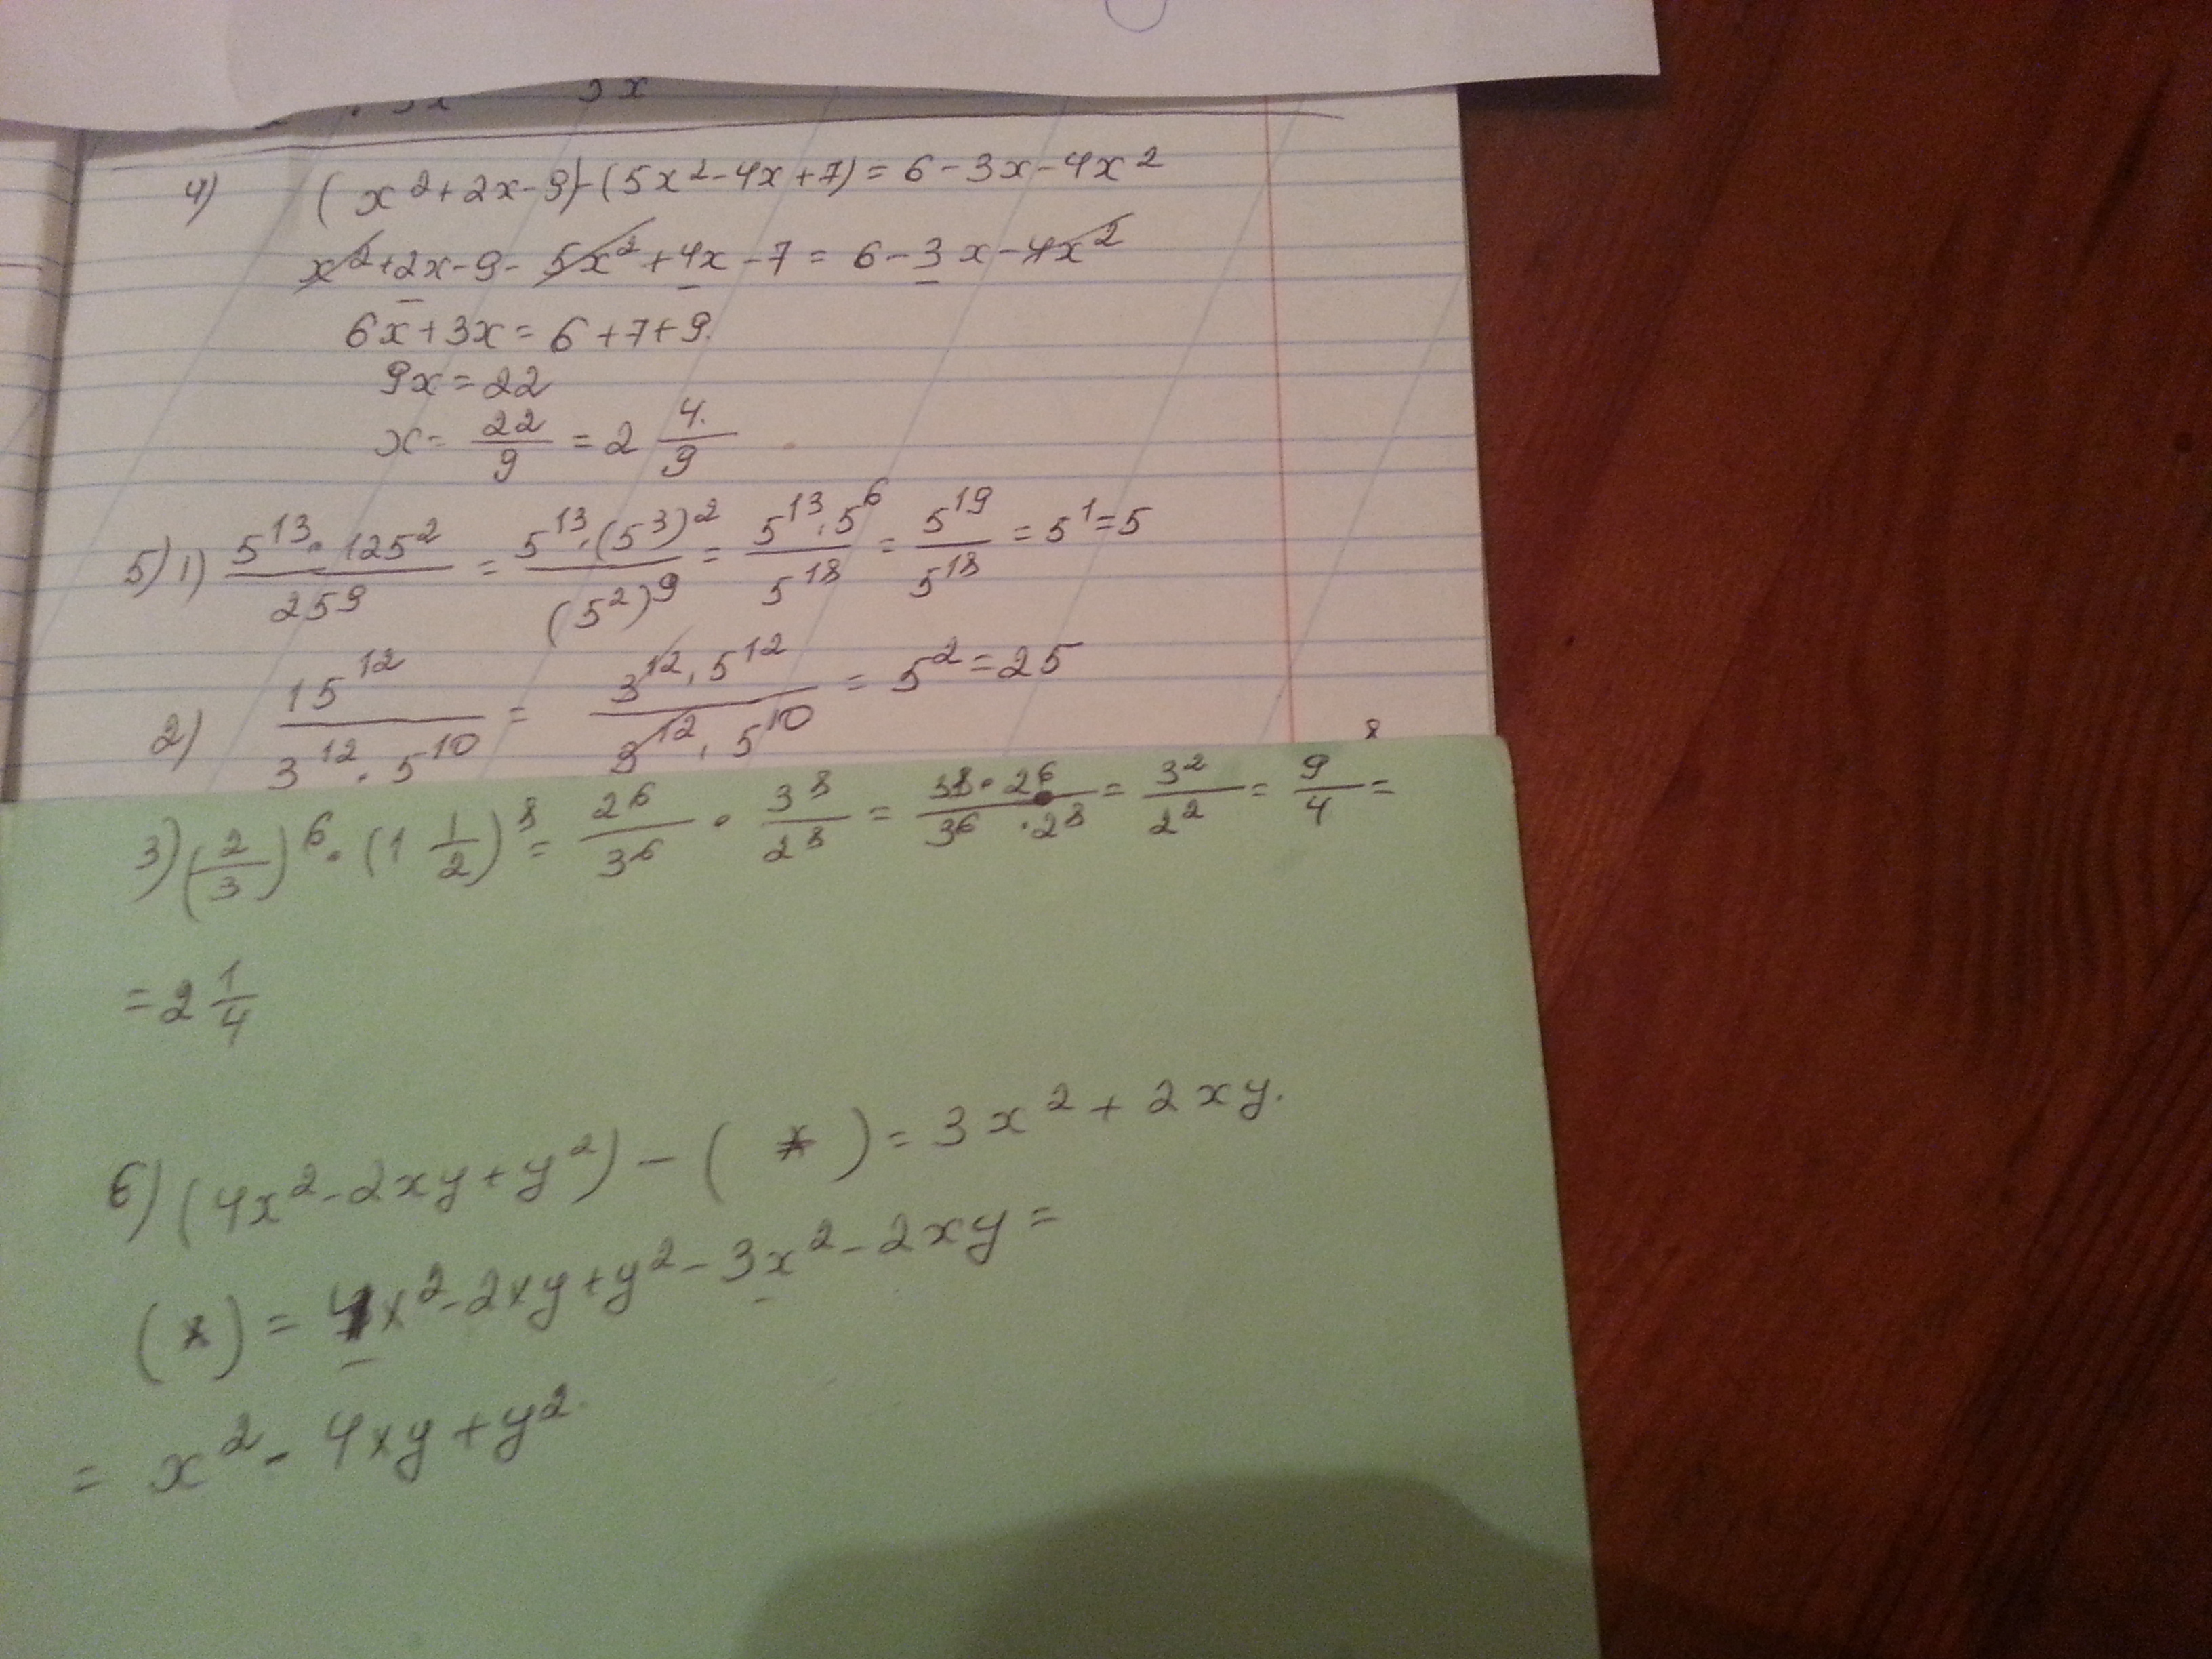 3x
4) (x²+2x-9)-(5x²-4x+7)=6-3x-4x²
x²+2x-9-5x²+4x-7=6-3x-4x²
6x+3x=6+7+9.
9x=22
x=22/9=2 4/9
5)1) 5¹³·125²/25⁹=5¹³·(5³)²/(5²)⁹=5¹³·5⁶/5¹⁸=5¹⁹/5¹⁸=5¹=5
2) 15¹²/3¹²·5¹⁰=3¹²·5¹²/3¹²·5¹⁰=5²=25
3)(2/3)⁶·(1 1/2)⁸=2⁶/3⁶·3⁸/2⁸=3⁸·2⁶/3⁶·2⁸=3²/2²=9/4=
=2 1/4
6)(4x²-2xy+y²)-(*)=3x²+2xy.
(*)=4x²-2xy+y²-3x²-2xy=
=x²-4xy+y².